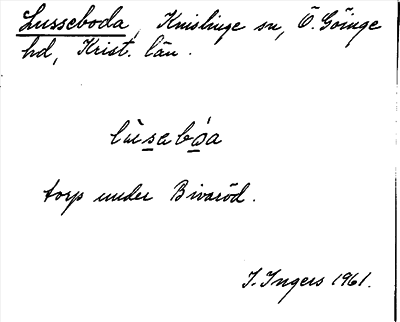 Lusseboda, Knislinge sn, Ö. Göinge
hd, Krist. län.
torp under Bivaröd.
I. Ingers 1961.